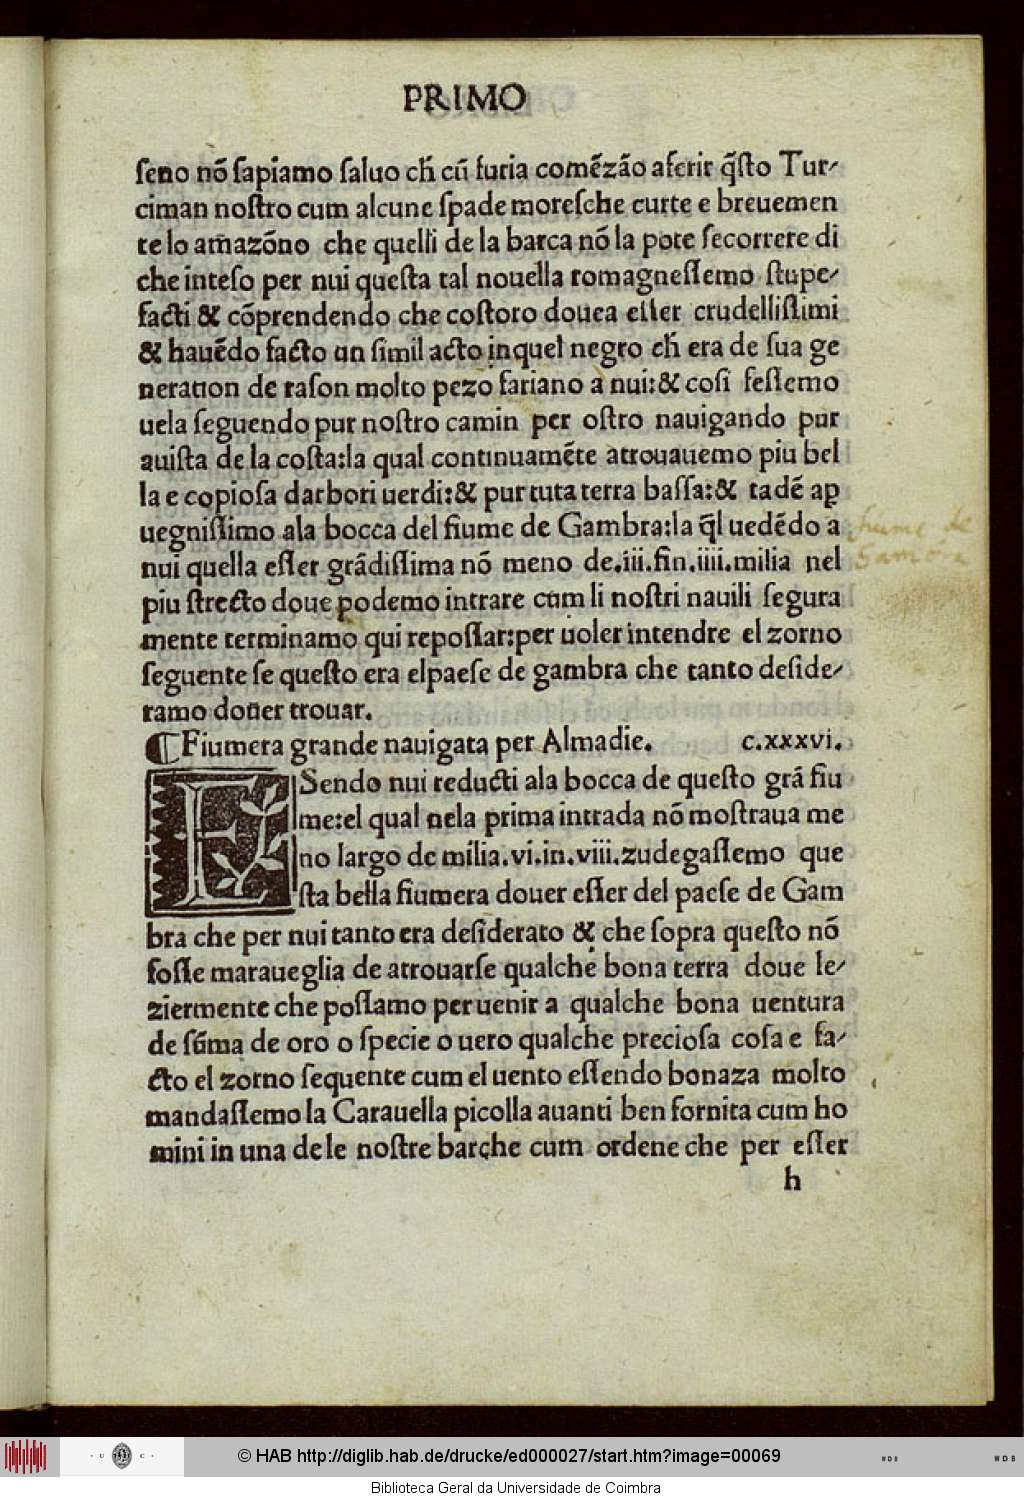 PRIMO
seno nõ sapiamo saluo ch̃ cũ furia comẽzão aferir q̃sto Tur-
ciman nostro cum alcune spade moresche curte e breuemen
te lo am̃azõno che quelli de la barca nõ la pote secorrere di
che inteso per nui questa tal nouella romagnessemo stupe-
facti & cõprendendo che costoro douea esser crudellissimi
& hauẽdo facto un simil acto in quel negro ch̃ era de sua ge
neration de rason molto pezo fariano a nui:& cosi fessemo
uela seguendo pur nostro camin per ostro nauigando pur
auista de la costa:la qual continuamẽte atrouauemo piu bel
la e copiosa darbori uerdi:& pur tuta terra bassa:& tadẽ aꝑ
uegnissimo ala bocca del fiume de Gambra:la q̃l uedẽdo a
nui quella esser grãdissima nõ meno de.iii.fin.iiii.milia nel
piu strecto doue podemo intrare cum li nostri nauili segura
mente terminamo qui repossar:per uoler intendre el zorno
seguente se questo era elpaese de gambra che tanto deside-
ramo douer trouar.
fiume de
Gambra
¶Fiumera grande nauigata per Almadie. c.xxxvi.
ESendo nui reducti ala bocca de questo grã fiu
me:el qual nela prima intrada nõ mostraua me
no largo de milia.vi.in.viii.zudegassemo que
sta bella fiumera douer esser del paese de Gam
bra che per nui tanto era desiderato & che sopra questo nõ
fosse maraueglia de atrouarse qualche bona terra doue le-
ziermente che possamo peruenir a qualche bona uentura
de sũma de oro o specie o uero qualche preciosa cosa e fa-
cto el zorno sequente cum el uento essendo bonaza molto
mandassemo la Carauella picolla auanti ben fornita cum ho
mini in una dele nostre barche cum ordene che per esser
h
© HAB http://diglib.hab.de/drucke/ed000027/start.htm?image=00069
WDB
WDB
· U C ·
Biblioteca Geral da Universidade de Coimbra